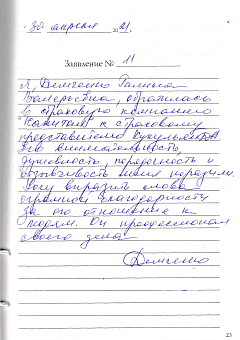 30 апреля 2021.
Заявление № 11
Я, Демченко Галина
Валерьевна, обратилась
в страховую компанию
Капитал к страховому
представителю
Его внимательность,
душевность, порядочность и
отзывчивость меня поразили.
Хочу выразить слова
огромной благодарности
за его отношение к
людям. Он профессионал
своего дела
Демченко
23